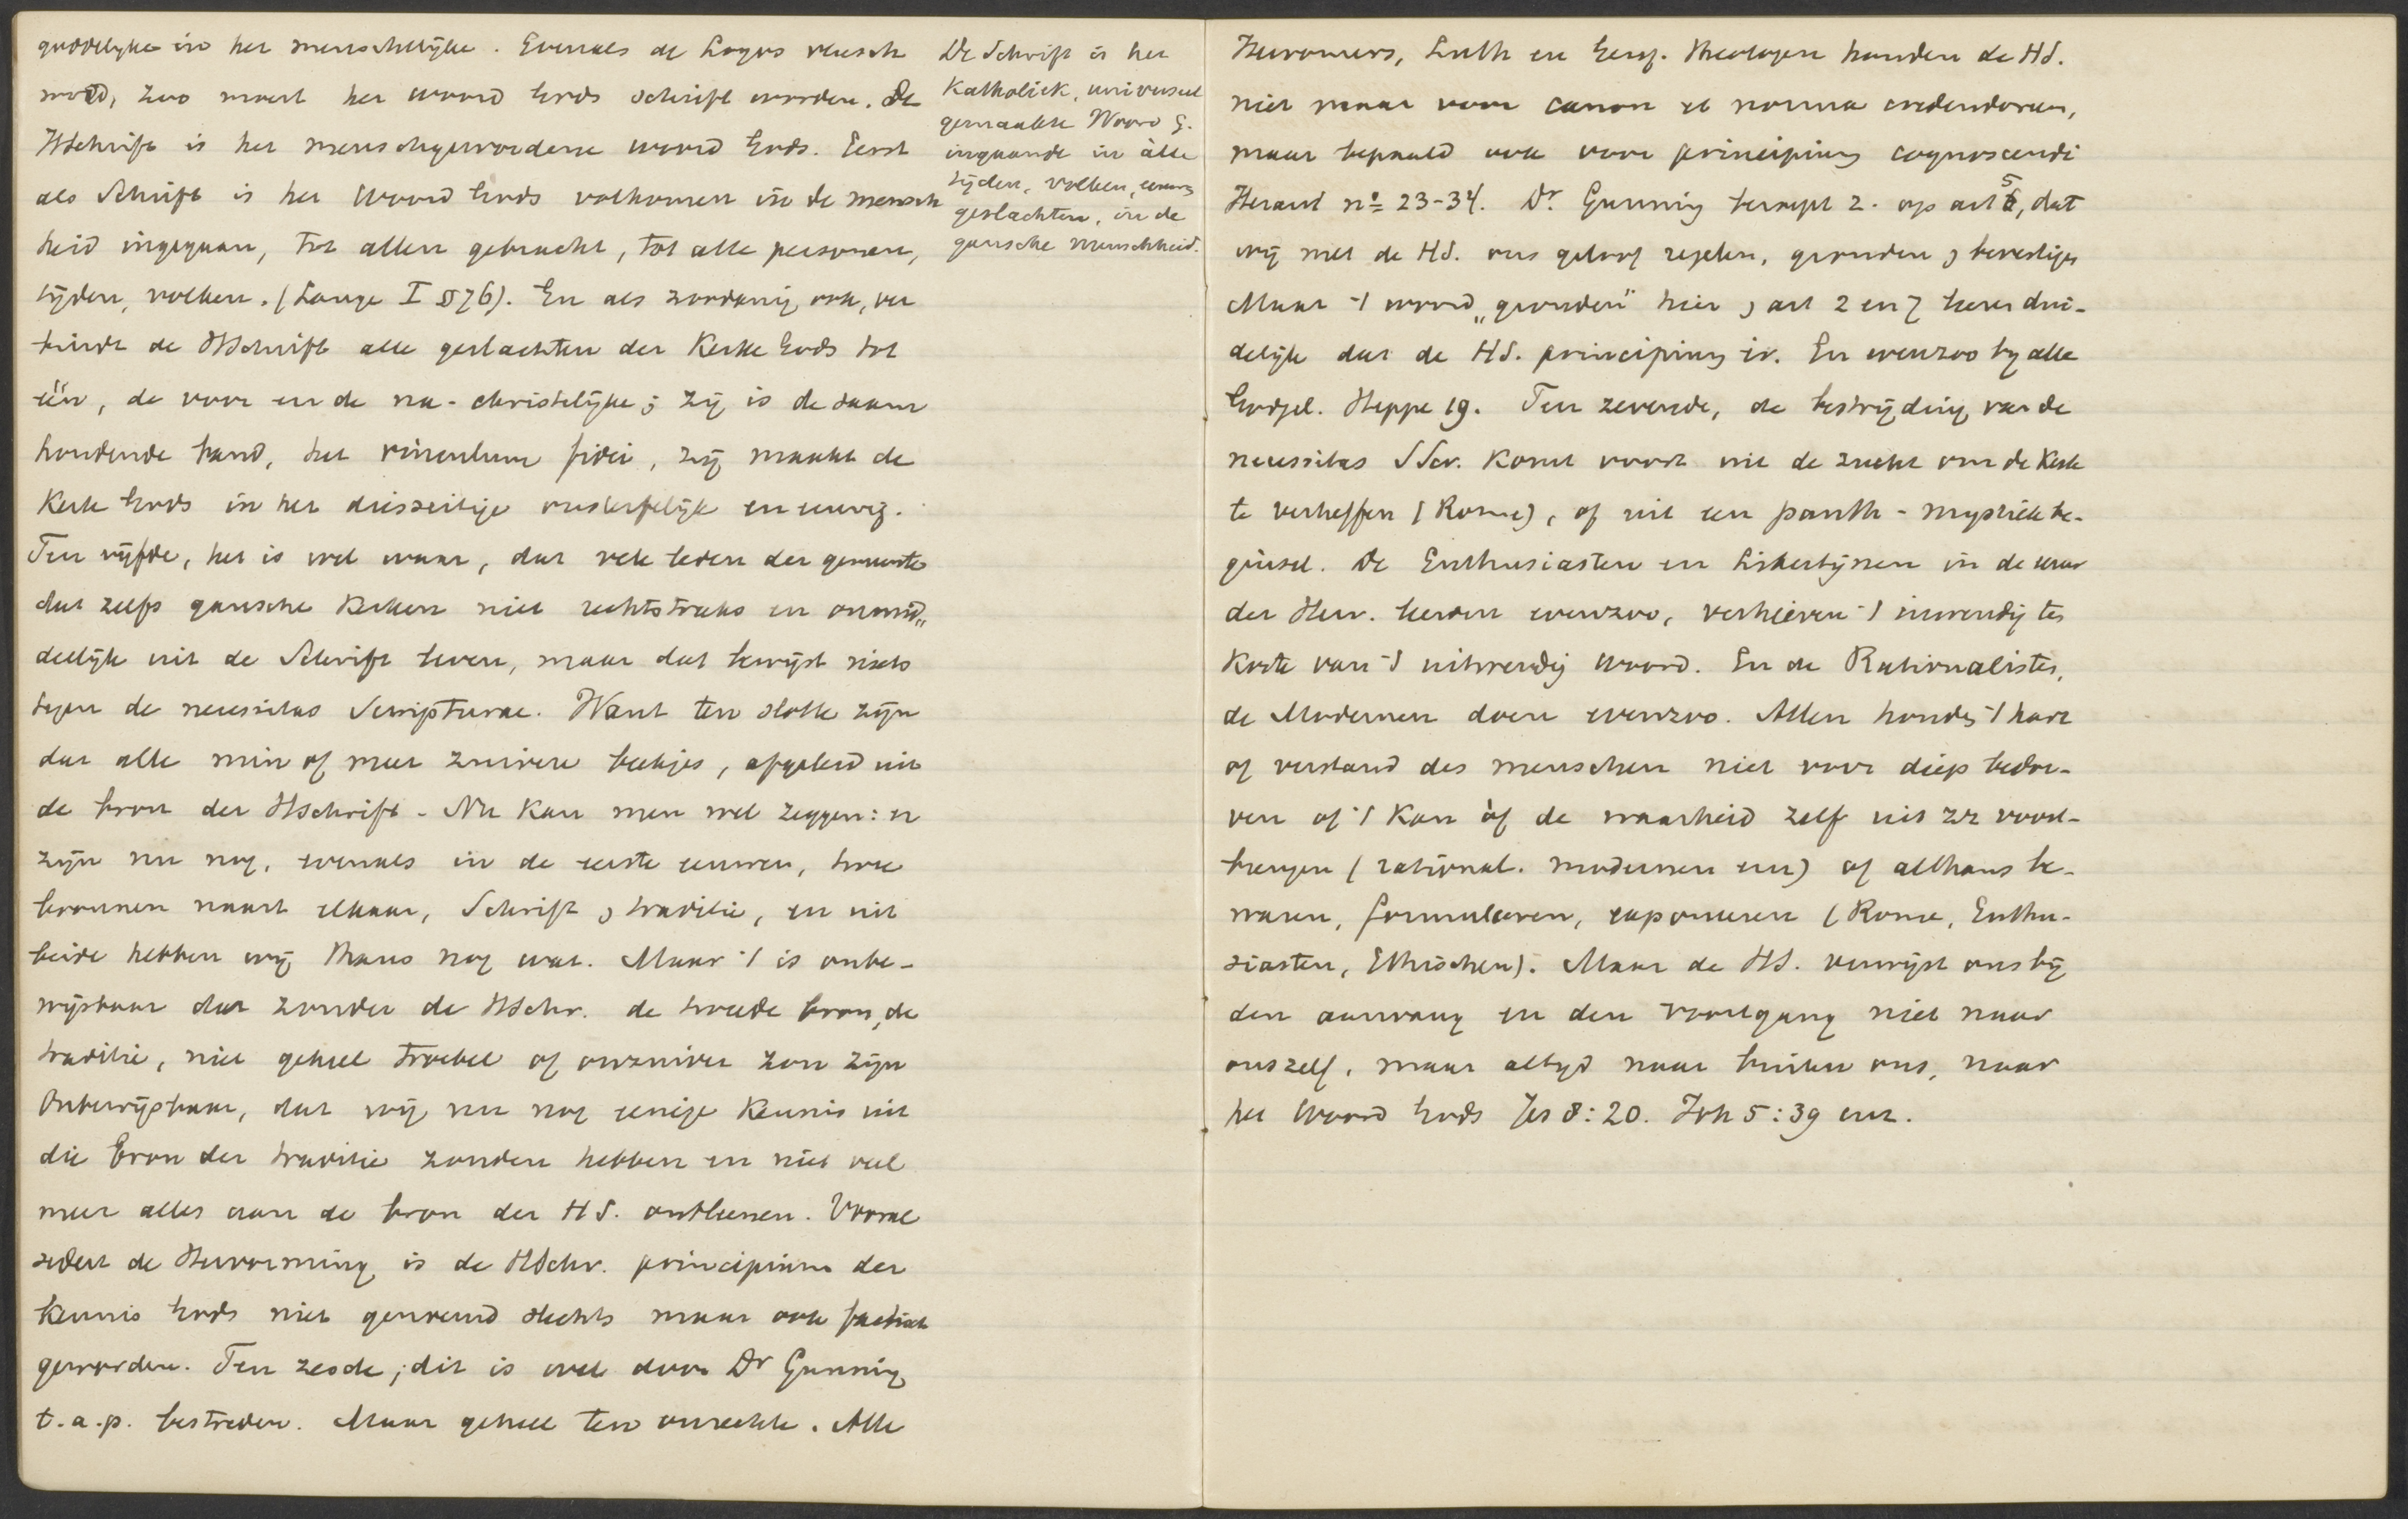 goddelyke in het menschelijke. Evenals de Logos vleesch
werd, zoo moest het woord Gods schrift worden. De
HSchrift is het menschgewordene woord Gods. Eerst
als Schrift is het Woord Gods volkomen in de mensch
heid ingegaan, tot allen gebracht, tot alle personen,
tijden, volken. (Lange I 576). En als zoodanig ook, ver
bindt de HSchrift alle geslachten der Kerke Gods tot
één, de voor en de na-christelijke; zij is de saam
houdende band, het vinculum fidei, zij maakt de
Kerk Gods in het diesseitige onsterfelijk en eeuwig.
Ten vijfde, het is wel waar, dat vele leden der gemeente
dat zelfs gansche Kerken niet rechtstreeks en onmid„
dellijk uit de Schrift leven, maar dat bewijst niets
tegen de necessitas Scripturae. Want ten slotte zijn
dat alle min of meer zuivere beekjes, afgeleid uit
de bron der HSchrift. Nu kan men wel zeggen: er
zijn nu nog, evenals in de eerste eeuwen, twee
bronnen naast elkaar, Schrift & traditie, en uit
beide hebben wij thans nog wat. Maar 't is onbe-
wijsbaar dat zonder de HSchr. de tweede bron, de
traditie, niet geheel troebel of onzuiver zou zijn
Onbewijsbaar, dat wij nu nog eenige Kennis uit
die bron der traditie zouden hebben en niet veel
meer alles aan de bron der HS. ontleenen. Vooral
sedert de Hervorming is de HSchr. principium der
Kennis Gods niet genoemd slechts maar ook factisch
geworden. Ten zesde; dit is wel door Dr Gunning
t.a.p. bestreden. Maar geheel ten onrechte. Alle
De Schrift is het
Katholiek, universeel
gemaakte Woord G.
ingaande in àlle
tijden, volken, eeuwen
geslachten, in de
gansche menschheid.
Hervormers, Luth en Geref. Theologen houden de HS.
niet maar voor canon et norma credendorum,
maar bepaald ook voor principium cognoscendi
Heraut no 23-34. Dr. Gunning beroept z. op art 5, dat
wij met de HS. ons geloof regelen, gronden & bevestigen
Maar 't woord „gronden" hier & art 2 en 7 leeren dui-
delijk dat de HS. principium is. En evenzoo by alle
Godgel. Heppe 19. Ten zevende, de bestrijding van de
necessitas SScr. komt voort uit de zucht om de Kerk
te verheffen (Rome), of uit een panth-mystiek be-
ginsel. De Enthusiasten en Libertijnen in de eeuw
der Herv. leerden evenzoo, verhieven 't inwendig ten
Koste van 't uitwendig woord. En de Rationalisten,
de Modernen doen evenzoo. Allen houden 't hart
of verstand des menschen niet voor diep bedor-
ven of 't kan òf de waarheid zelf uit zz voort-
brengen (rational. modernen enz) of althans be-
waren, formuleeren, exponeeren (Rome, Enthu-
siasten, Ethischen). Maar de HS. verwijst ons bij
den aanvang en den voortgang niet naar
ons zelf, maar altyd naar buiten ons, naar
het Woord Gods Jes 8:20. Joh 5:39 enz.